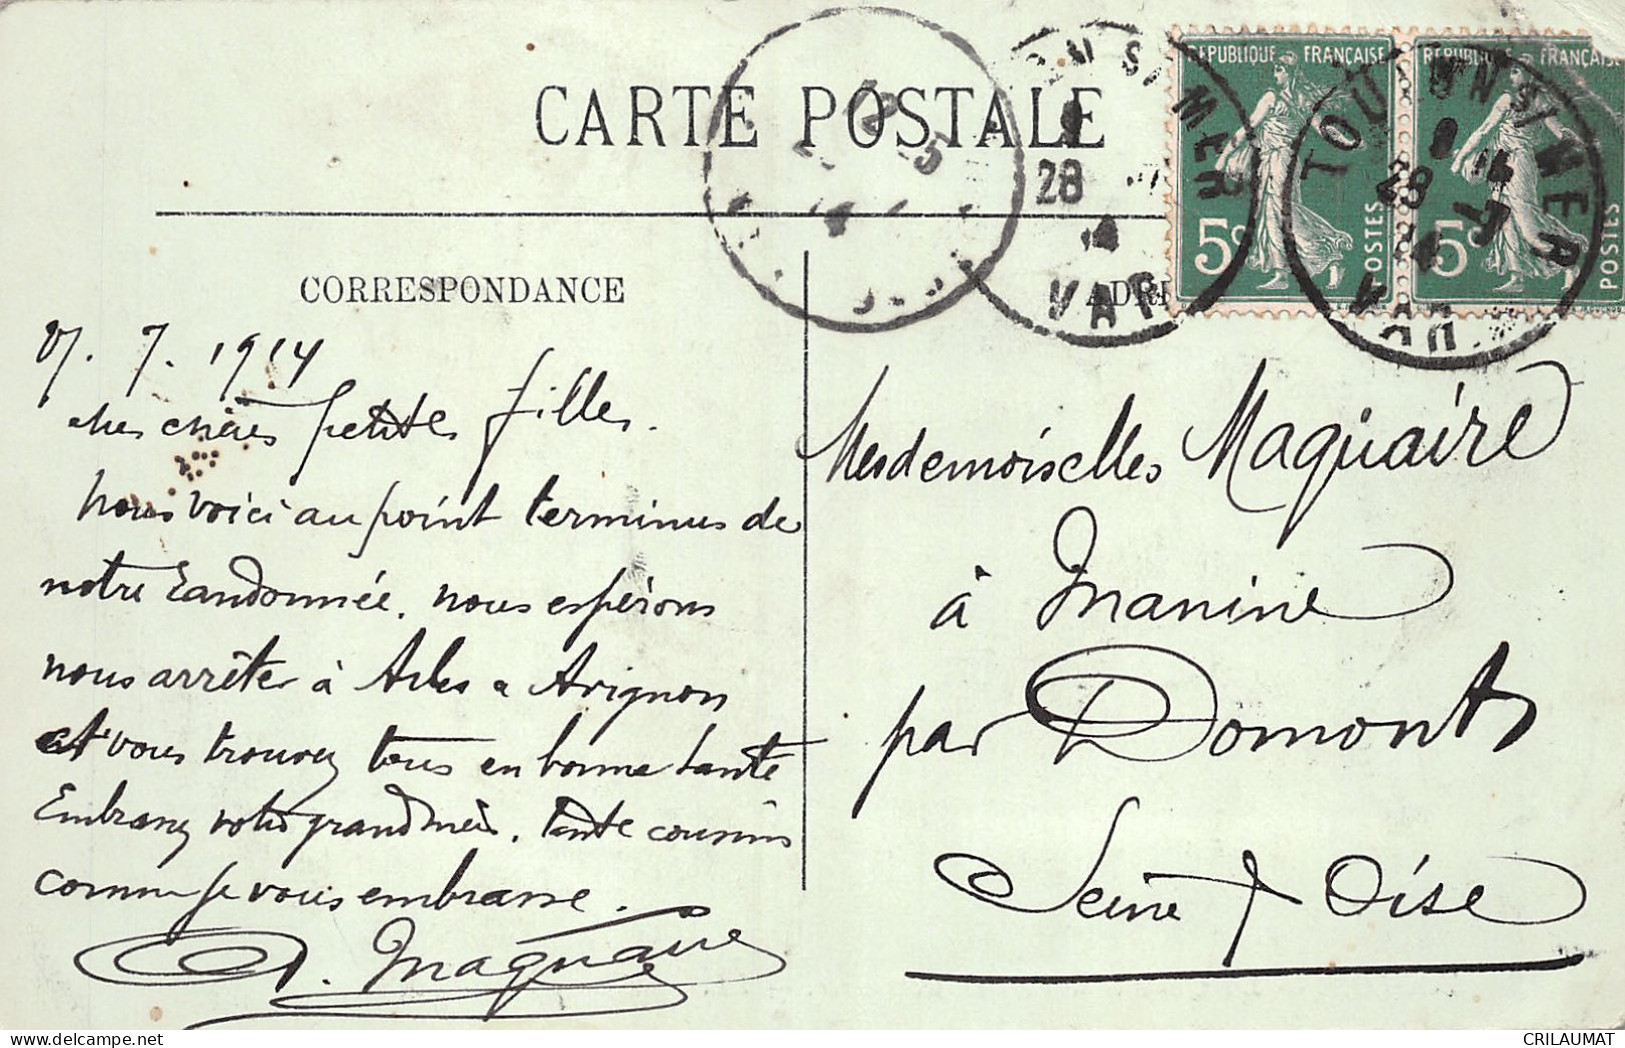 CARTE POSTALE
CORRESPONDANCE
ADR
RÉPUBLIQUE FRANÇAISE
5c
POSTES
RÉPUBLIQUE FRANÇAISE
5c
POSTES
TOULON S/ MER
28
VAR
TOULON S/ MER
28
VAR
7. 1914
Mes chères petites filles.
Nous voici au point terminus de
notre randonnée. nous espérons
nous arrêter à Arles & Avignon
et vous trouver tous en bonne santé
Embrassez votre grandmère. tante cousins
comme je vous embrasse.
Maquaire
Mesdemoiselles Maquaire
à Manine
par Domont
Seine & Oise
CRILAUMAT